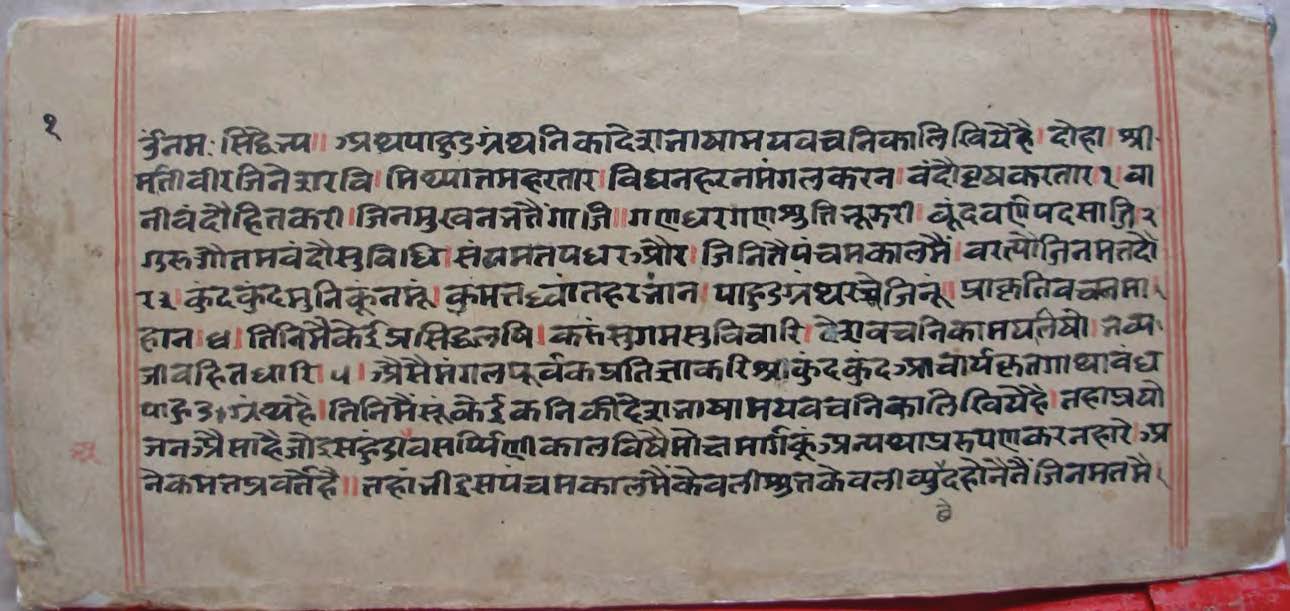 १
ॐ नमः सिद्धेभ्य॥ अथ पाहुड ग्रंथनि का देशभाषामय वचनिका लिखिये है। दोहा। श्री
मतवीर जिनेशरवि। मिथ्यातमहरतार। विघनहरन मंगलकरन। वंदौ वृषकरतार १ वा
नी वंदौ हितकरी। जिनमुखनभतै गाजि॥ गणधरगणश्रुति भू झरी। वूंद वर्णपद साजि २
गुरु गौतम वंदौ सुविधि। संयमतपधर और। जिनितै पंचमकालमै। वरत्यो जिनमत दौ
र ३। कुंदकुंदमुनिकूं नमूं। कुमतध्वांतहरभांन। पाहुड ग्रंथ रचे जिनूं॥ प्राकृतिवचन मा
हान। ४। तिनिमै केई प्रसिद्ध लषि। करूं सुगम सुविचारि। देशवचनिकामय लिषो। भव्य
जीव हित धारि। ५। अैसै मंगलपूर्वक प्रतिज्ञा करि श्री कुंदकुंद आचार्यकृत गाथाबंध
पाहुड ग्रंथ है। तिनिमैसूं केईकनि की देशभाषामय वचनिका लिखिये है। तहा प्रयो
जन अैसा है जो इस हुंडावसर्प्पिणी काल विषै मोक्षमार्गकूं अन्यथा प्ररूपण करनहारे अ
नेक मत प्रवर्तै है॥ तहां भी इस पंचमकालमै केवली श्रुतकेवली व्युछेद होनेतै जिनमतमै